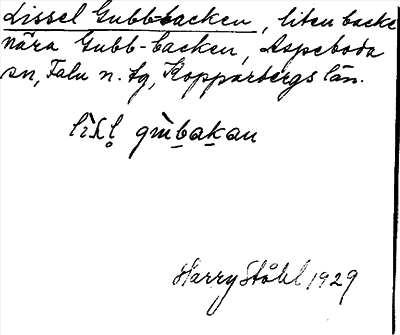 Lissel Gubb-backen, liten backe
nära Gubb-backen, Aspeboda
sn, Falu n. tg, Kopparbergs län.
Harry Ståhl 1929